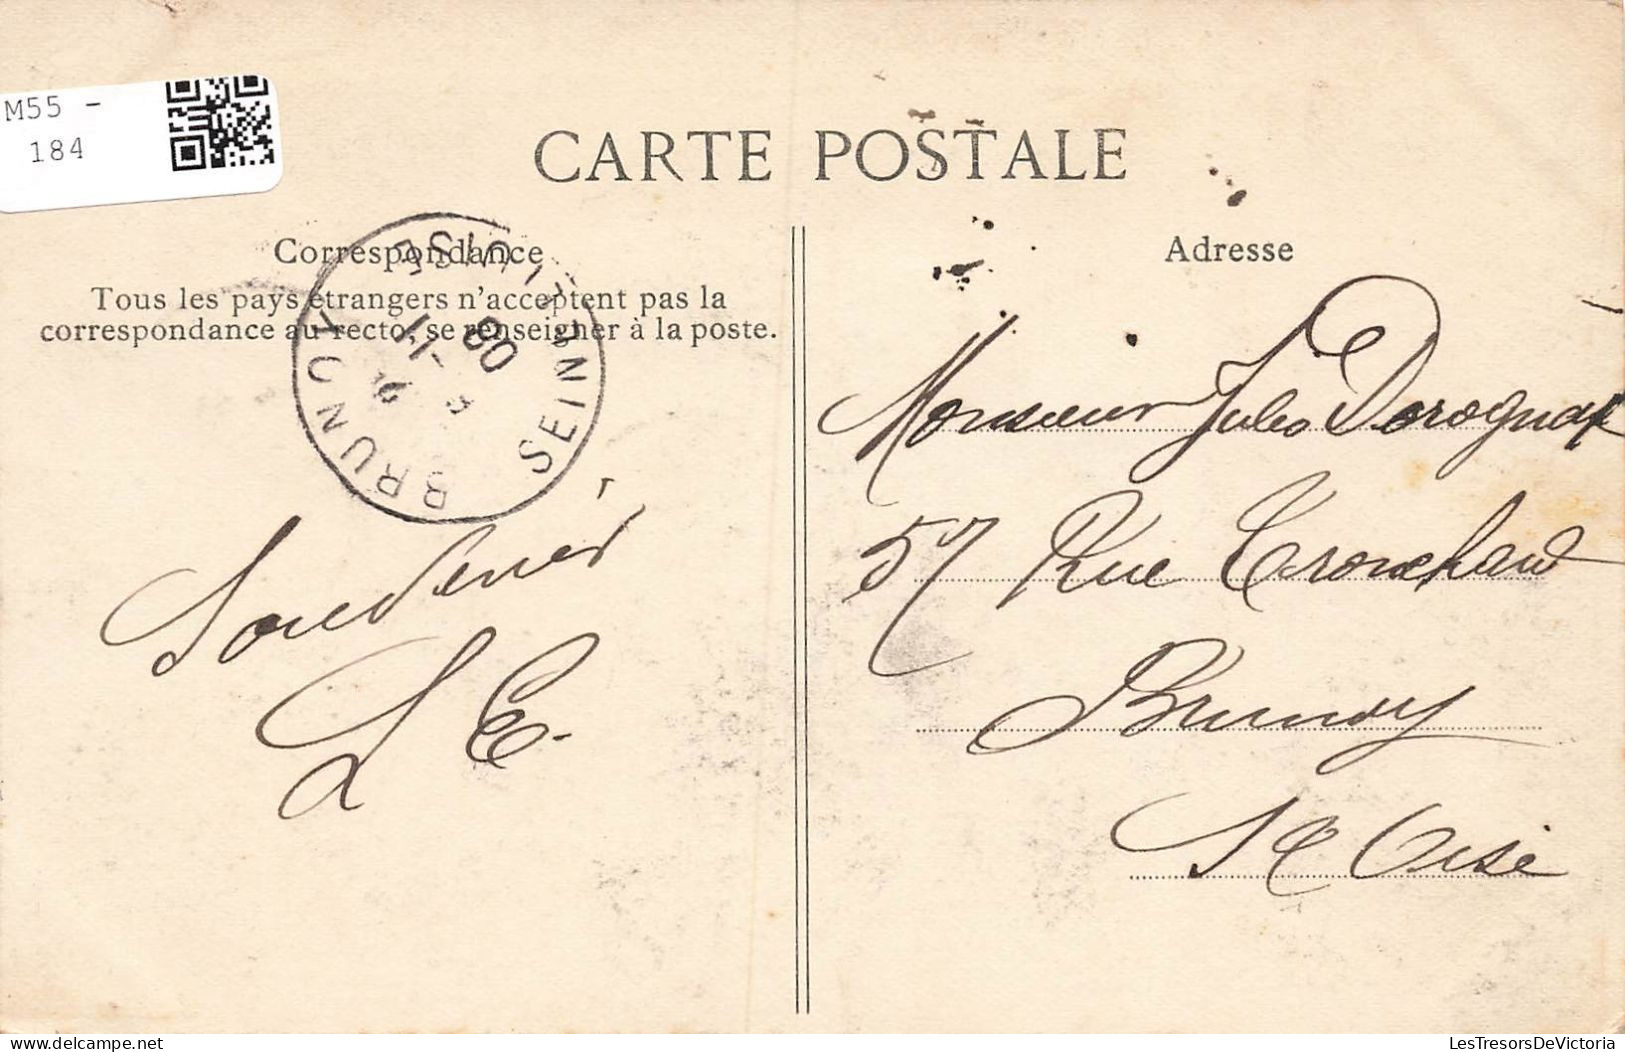 M55 -
184
CARTE POSTALE
Correspondance
Tous les pays étrangers n'acceptent pas la
correspondance au recto, se renseigner à la poste.
BRUNOY SEINE-ET-OISE
09
Souvenir
L E.
Adresse
Monsieur Jules Dorognat
57 Rue Tronchard
Brunoy
S et Oise
LesTresorsDeVictoria